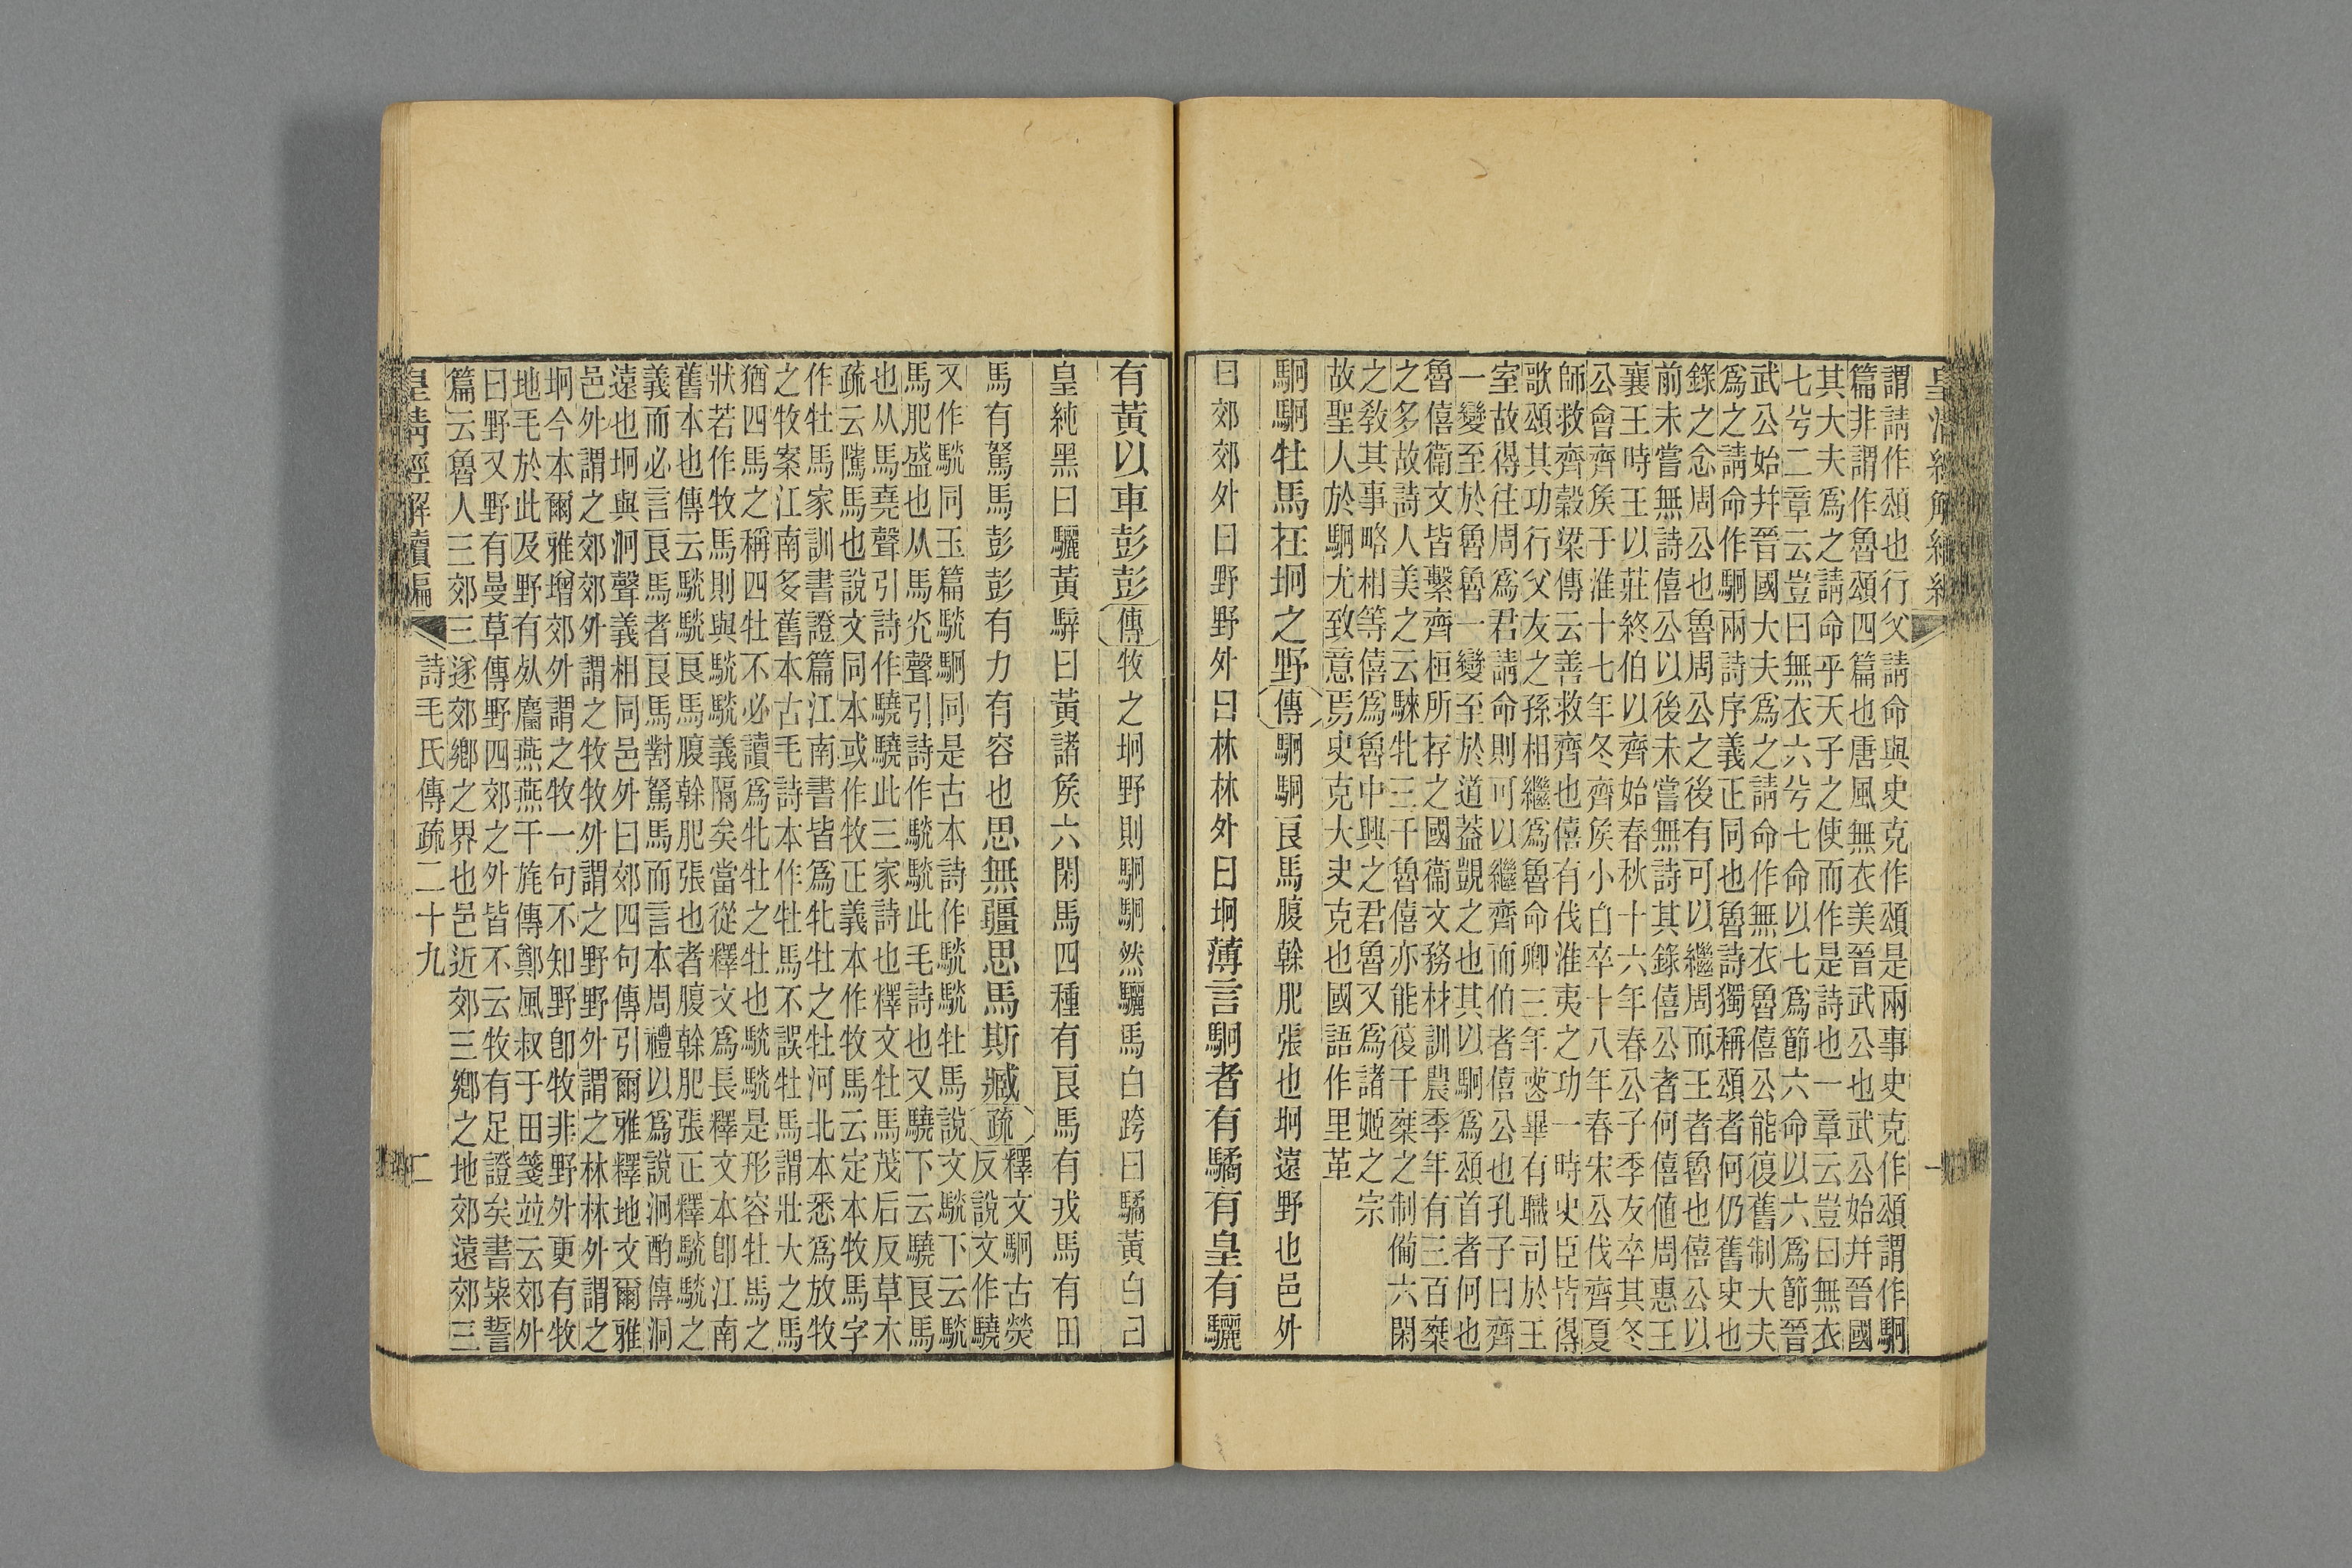 謂請作頌也行父請命與史克作頌是兩事史克作頌謂作駉
篇非謂作魯頌四篇也唐風無衣美晉武公也武公始并晉國
其大夫爲之請命乎天子之使而作是詩也一章云豈曰無衣
七兮二章云豈曰無衣六兮七命以七爲節六命以六爲節晉
武公始并晉國大夫爲之請命作無衣魯僖公能復舊制大夫
爲之請命作駉兩詩序義正同也魯詩獨稱頌者何仍舊史也
錄之念周公也魯周公之後有可以繼周而王者魯也僖公以
前未嘗無詩僖公以後未嘗無詩其錄僖公者何僖値周惠王
襄王時王以莊終伯以齊始春秋十六年春公子季友卒其冬
公會齊矦于淮十七年冬齊矦小白卒十八年春宋公伐齊夏
師救齊穀梁傳云善救齊也僖有伐淮夷之功一時史臣皆得
歌頌其功行父友之孫相繼爲魯命卿三年喪畢有職司於王
室故得往周爲君請命則可以繼齊而伯者僖公也孔子曰齊
一變至於魯魯一變至於道蓋覬之也其以駉爲頌首者何也
魯僖衞文皆繫齊桓所存之國衞文務材訓農季年有三百乘
之多故詩人美之云騋牝三千魯僖亦能復千乘之制備六閑
之敎其事略相等僖爲魯中興之君魯又爲諸姬之宗
故聖人於駉尤致意焉史克大史克也國語作里革
駉駉牡馬在坰之野傳駉駉良馬腹幹肥張也坰遠野也邑外
曰郊郊外曰野野外曰林林外曰坰薄言駉者有驈有皇有驪
有黃以車彭彭傳牧之坰野則駉駉然驪馬白跨曰驈黃白曰
皇純黑曰驪黃騂曰黃諸矦六閑馬四種有良馬有戎馬有田
馬有駑馬彭彭有力有容也思無疆思馬斯臧疏釋文駉古熒
反說文作驍
又作駫同玉篇駫駉同是古本詩作駫駫牡馬說文駫下云駫
馬肥盛也从馬光聲引詩作駫駫此毛詩也又驍下云驍良馬
也从馬堯聲引詩作驍驍此三家詩也釋文牡馬茂后反草木
疏云騭馬也說文同本或作牧正義本作牧馬云定本牧馬字
作牡馬家訓書證篇江南書皆爲牝牡之牡河北本悉爲放牧
之牧案江南多舊本古毛詩本作牡馬不誤牡馬謂壯大之馬
猶四馬之稱四牡不必讀爲牝牡之牡也駫駫是形容牡馬之
狀若作牧馬則與駫駫義隔矣當從釋文爲長釋文本卽江南
舊本也傳云駫駫良馬腹幹肥張也者腹幹肥張正釋駫駫之
義而必言良馬者良馬對駑馬而言本周禮以爲說泂酌傳泂
遠也坰與泂聲義相同邑外曰郊四句傳引爾雅釋地文爾雅
邑外謂之郊郊外謂之牧牧外謂之野野外謂之林林外謂之
坰今本爾雅增郊外謂之牧一句不知野卽牧非野外更有牧
地毛於此及野有死麕燕燕干旄傳鄭風叔于田箋竝云郊外
曰野又野有蔓草傳野四郊之外皆不云牧有足證矣書粊誓
篇云魯人三郊三遂郊鄉之界也邑近郊三鄉之地郊遠郊三
皇清經解續編
詩毛氏傳疏二十九
二